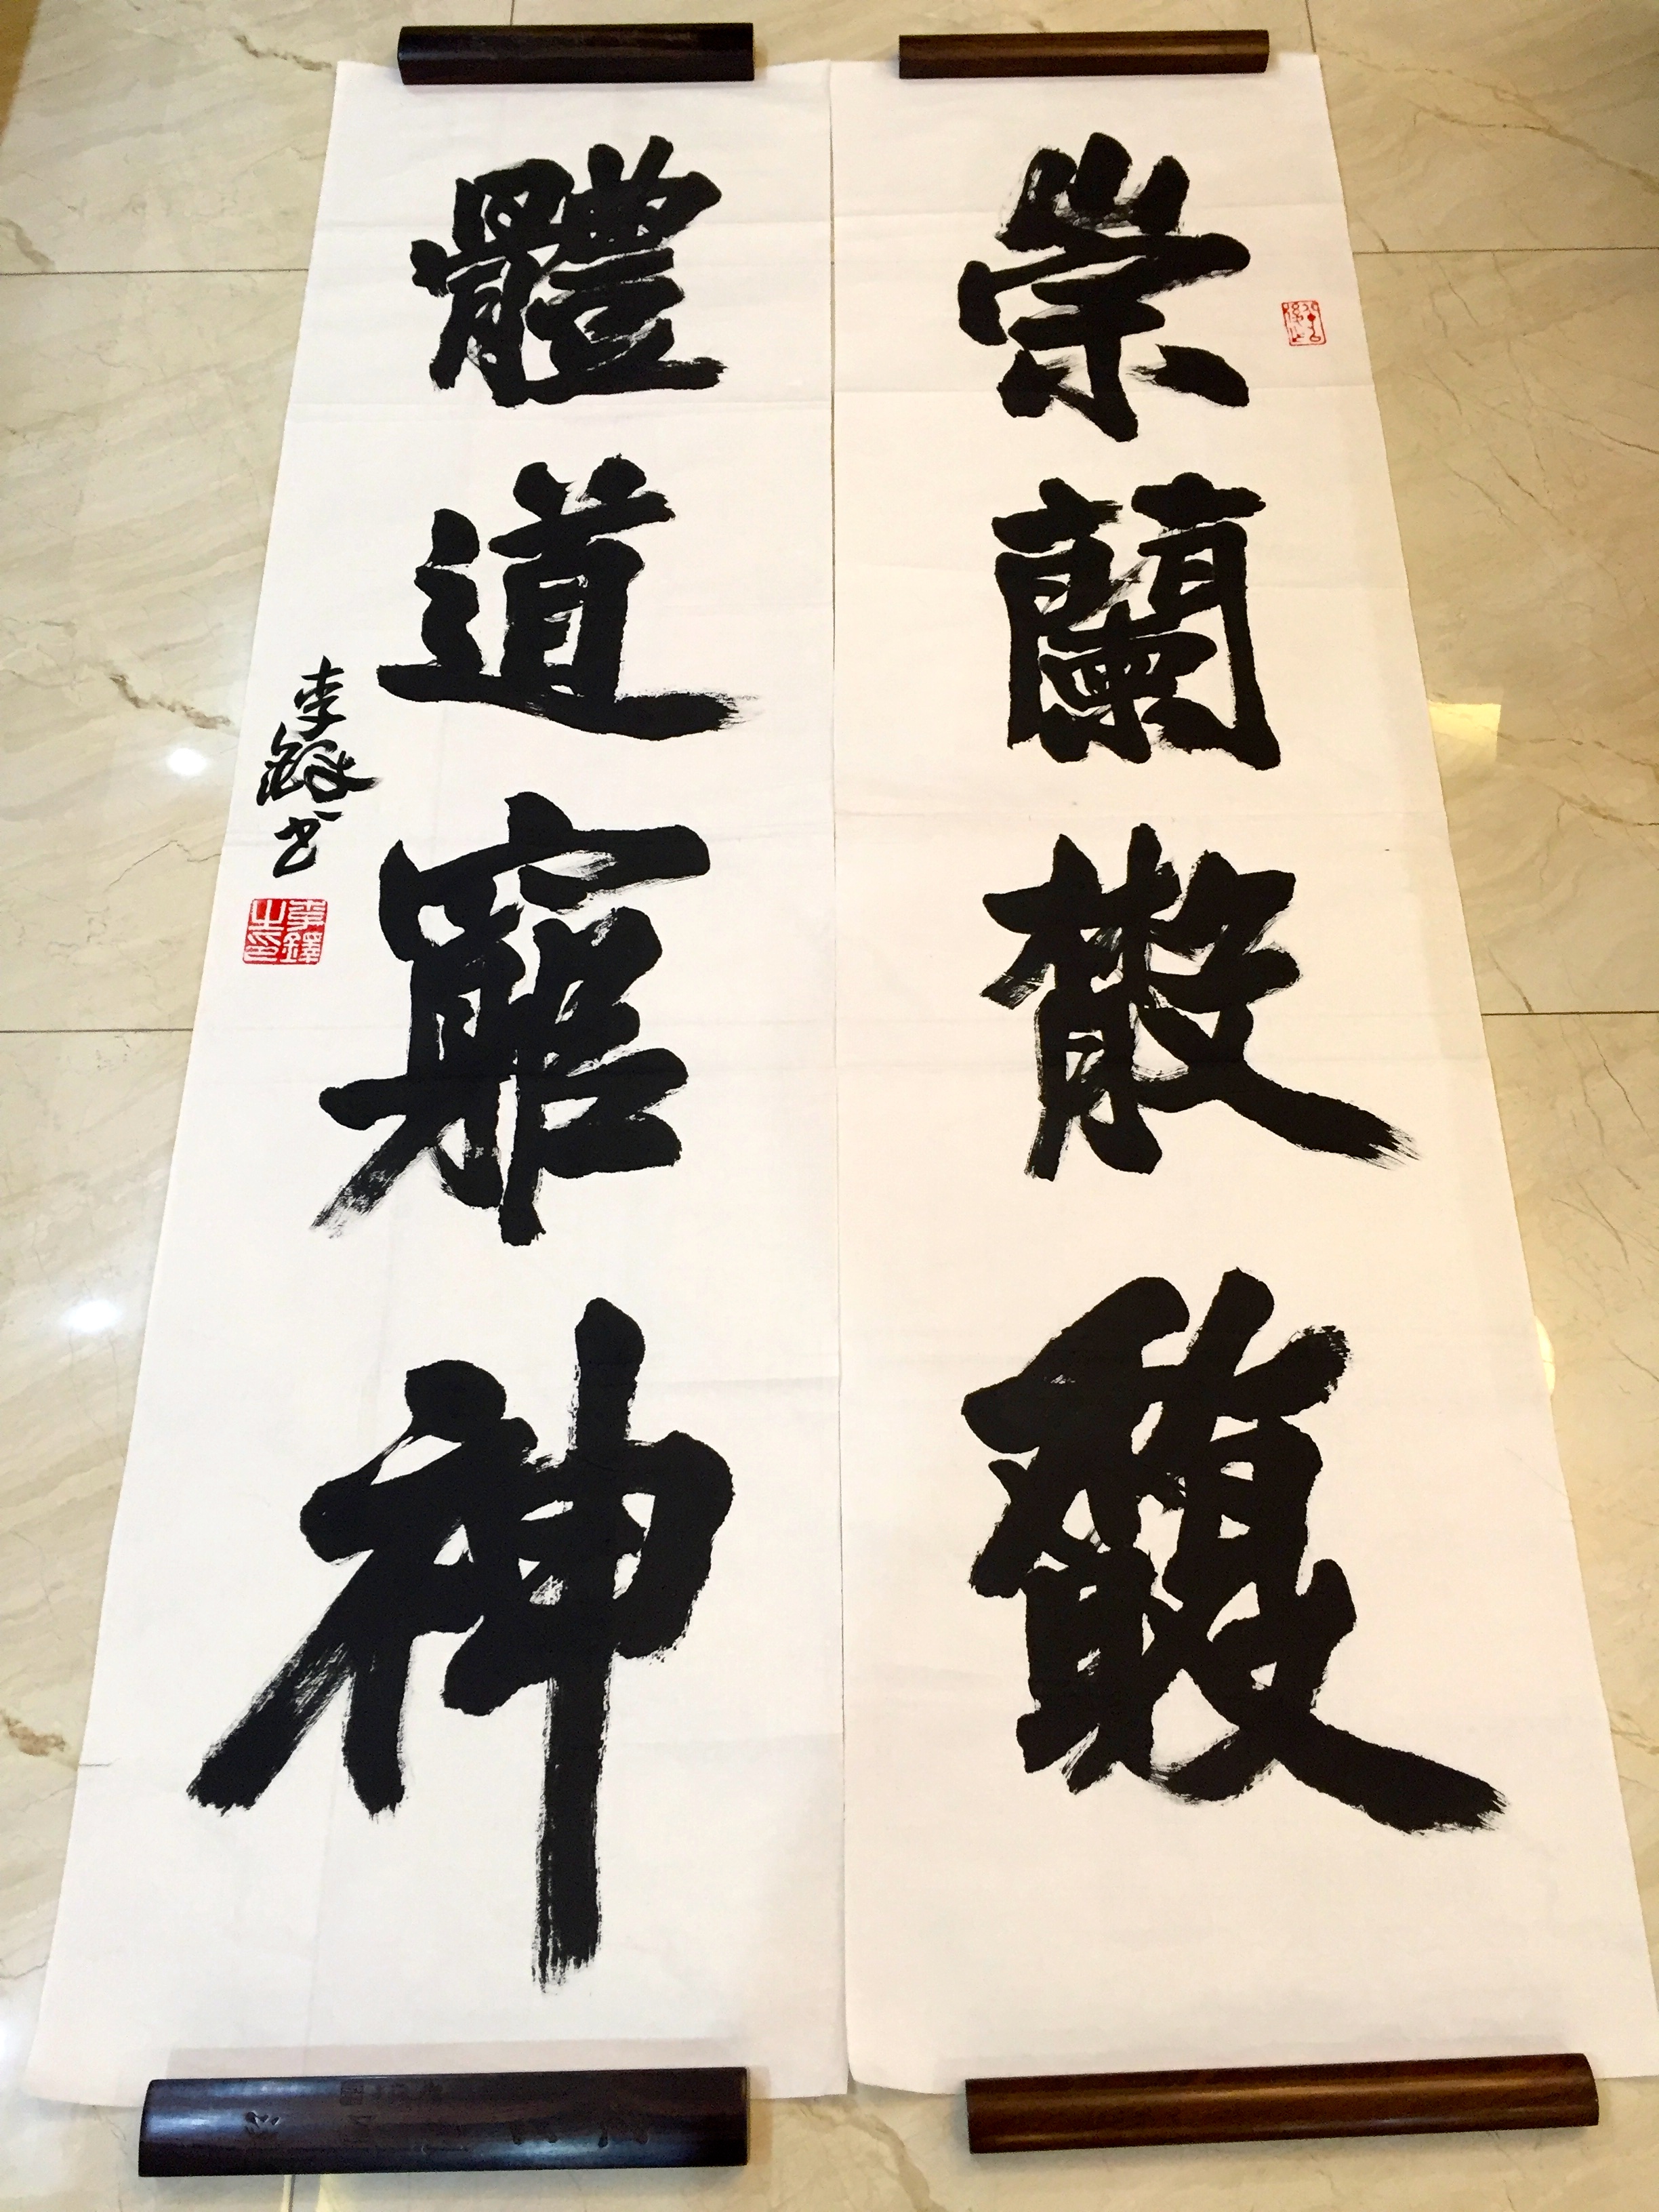 崇蘭散馥
體道窮神
李鐸书
李鐸之印